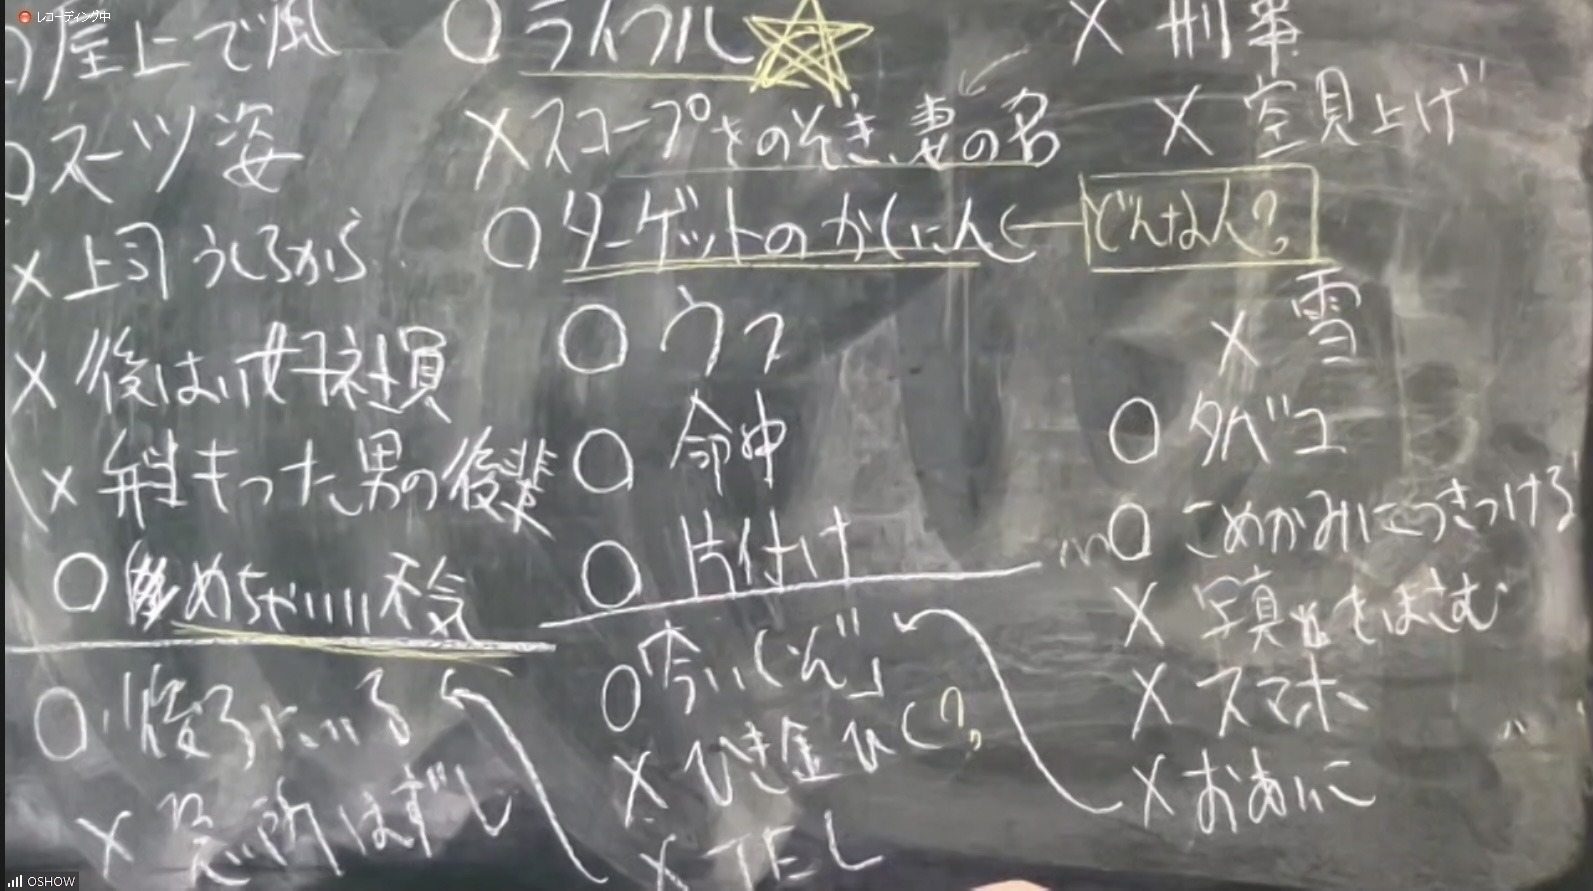 レコーディング中
○屋上で風
○スーツ姿
×上司うしろから
×後はい女子社員
×弁当もった男の後輩
○めちゃいい天気
○後ろにいる
×急所はずし
○ライフル
×スコープをのぞき、妻の名
○ターゲットのかくにん
どんな人?
○ウつ
○命中
○片付け
○「今いくぞ」
×ひき金ひく?
×TEL
×刑事
×空見上げ
×雪
○タバコ
○こめかみにつきつける
×写真をはさむ
×スマホ
×おあいこ
OSHOW